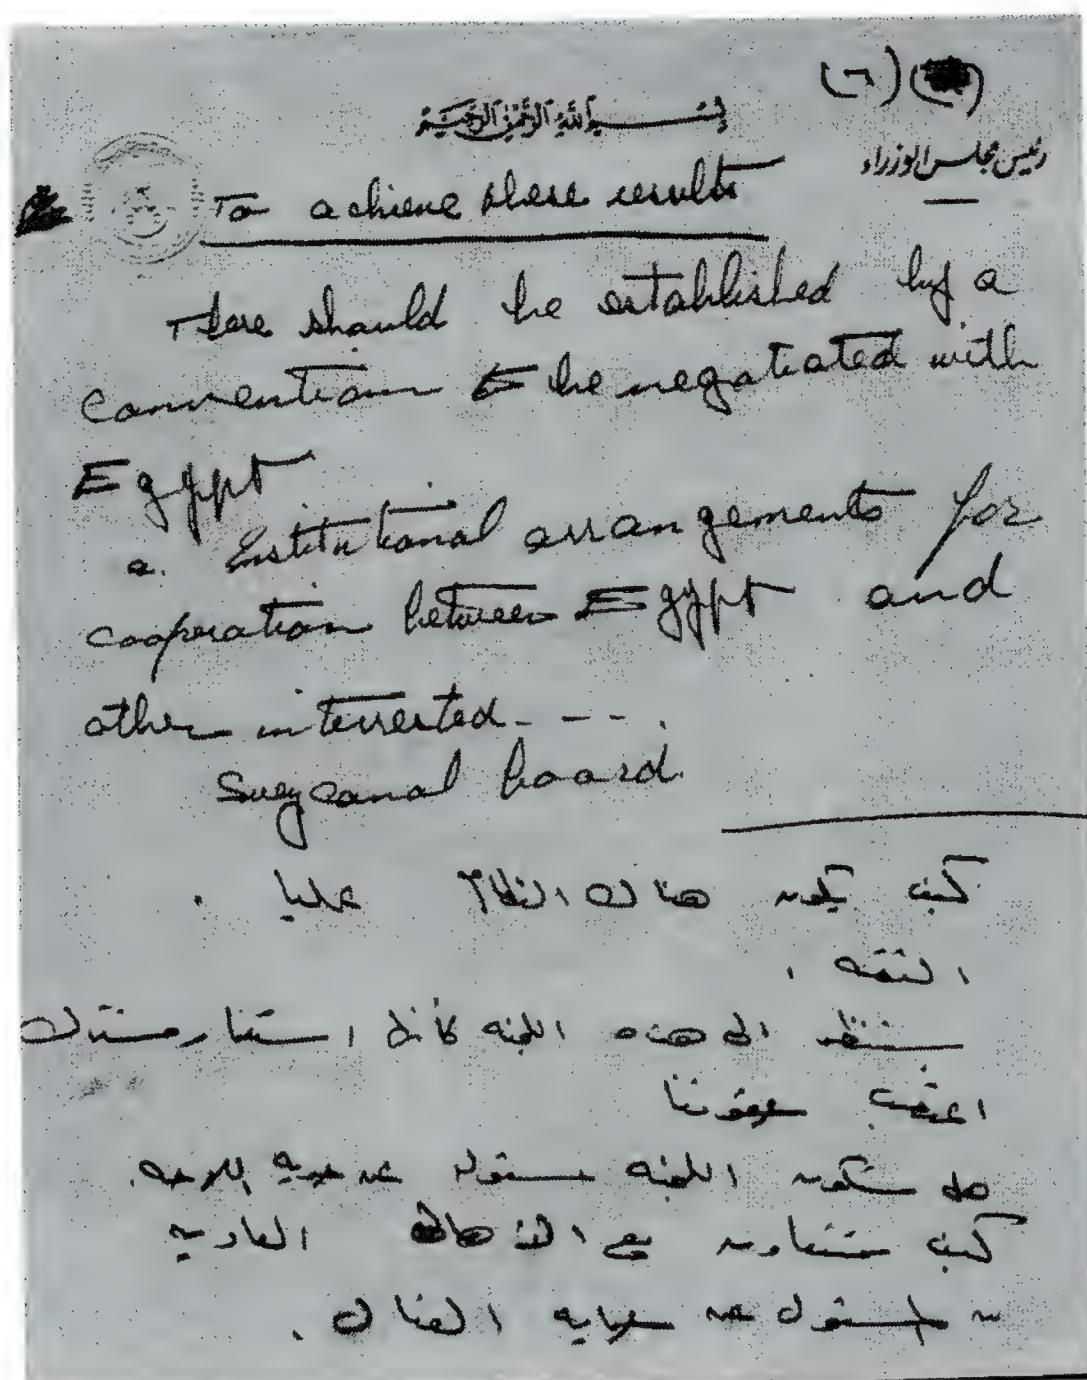 (٦)
بسم الله الرحمن الرحيم
رئيس مجلس الوزراء
To achieve these results
There should be established by a
convention to be negotiated with
Egypt
a. Institutional arrangements for
cooperation between Egypt and
other interrested - - - .
Suez canal board.
كيف يكون هناك النظام عليا .
الثقه .
ستنظر الى هذه اللجنه كأنها استعمار مشترك
اغتصب حقوقنا
هل ستكون اللجنه مسئوله عن حرية الملاحه.
كيف ستتعاون مع الالعاديه
من المسئول عن حماية القنال .